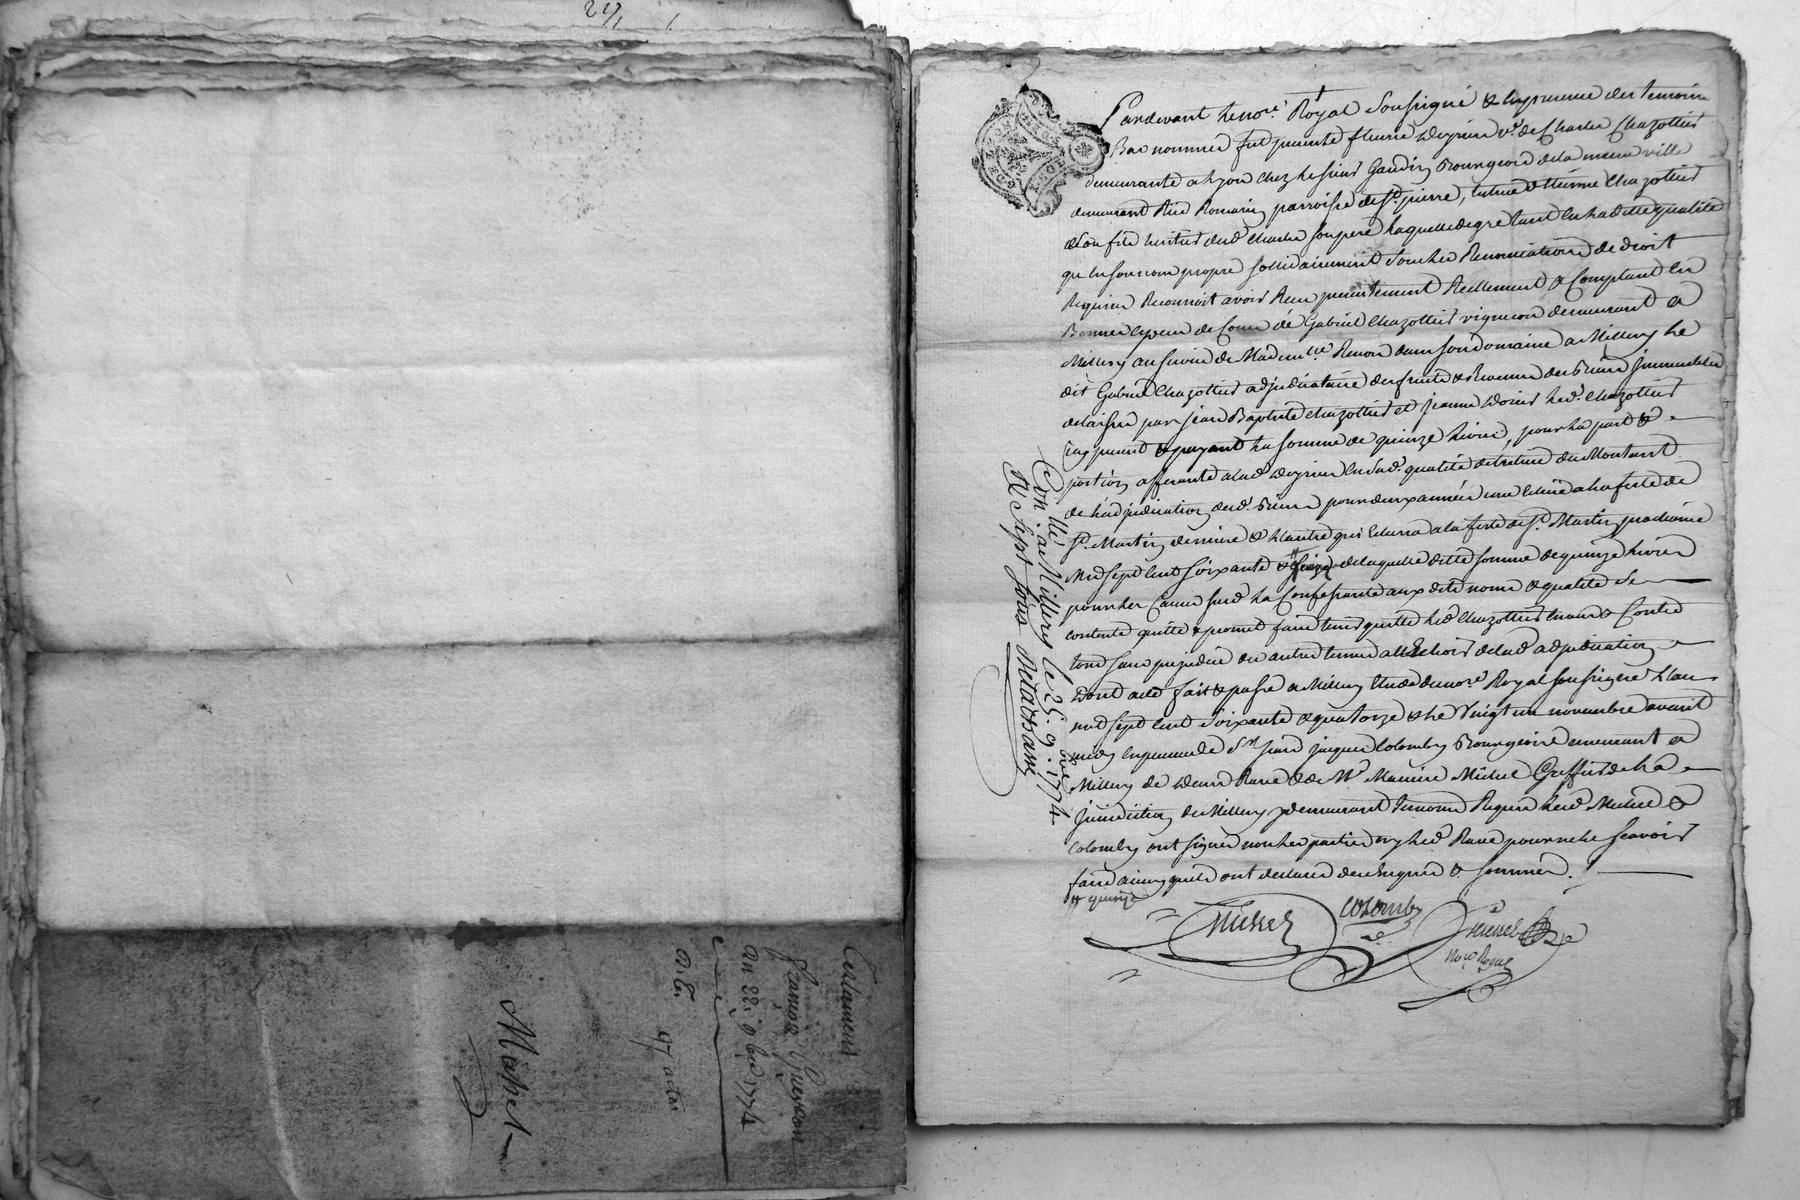 Testament
françois Guerdon
au 22: 9bre 1774
97 actes
Michel
Pardevant le nore. Royal Soussigné & En presence des temoins
Bas nommés fut presente fleurie veyrier ve. de Charles Chazottier
demeurante a Lyon chez le sieur Gaudin Bourgeois de la meme ville
demeurant Rüe Romarin parroisse de St. pierre, tutrice d'Etienne Chazottier
& Son fils heritier dud. Charles Son pere laquelle de gré tant En la ditte qualité
qu'En Son nom propre Sollidairement Sous les Renonciations de droit
Requises Reconnoit avoir Reçu presentement Reellement & Comptant En
Bonnes Especes de Cours de Gabriel Chazottier vigneron demeurant a
Millery au Service de Mad.lle Renou dans Son domaine a Millery le
dit Gabriel Chazottier adjudicataire des fruits & Revenus des Biens Jmmeubles
delaissés par Jean Baptiste Chazottier et Jeanne led. Chazottier
Cy present & payant la Somme de quinze livres, pour la part &
portion afferante a lad. veyrier En Sad. qualité de tutrice du Montant
de L'adjudication desd. Biens pour deux années une Echüe a la feste de
St. Martin derniere & L'autre qui Echerra a la feste de St. Martin prochaine
Mil Sept Cent Soixante & de laquelle ditte Somme de quinze livres
pour les Causes Susd. la Confessante aux dits noms & qualités Se
contente quitte & promet faire tenir quitte led. Chazottier Envers & Contre
tous Sans prejudice des autres termes a Echoir de lad. adjudication
Dont acte fait & passé a Millery Etude du nore. Royal Soussigné L'an
mil Sept Cent Soixante & quatorze & le Vingt un novembre avant
midy En presence de Sr. Jean Jacques Colomby Bourgeois demeurant a
Millery de Denis Rave & de Me. Maurice Michel Greffier de la
Jurisdiction de Millery y demeurant temoins Requis lesd. Michel &
Colomby ont Signé non les parties ny led. Rave pour ne le Scavoir
faire ainsy qu'ils ont declaré de ce Enquis & Sommés.
# quinze
Michel
Colomby
Michel
Nore Royal
Con.llé a Millery le 25. 9.bre 1774.
R. Sept Sous